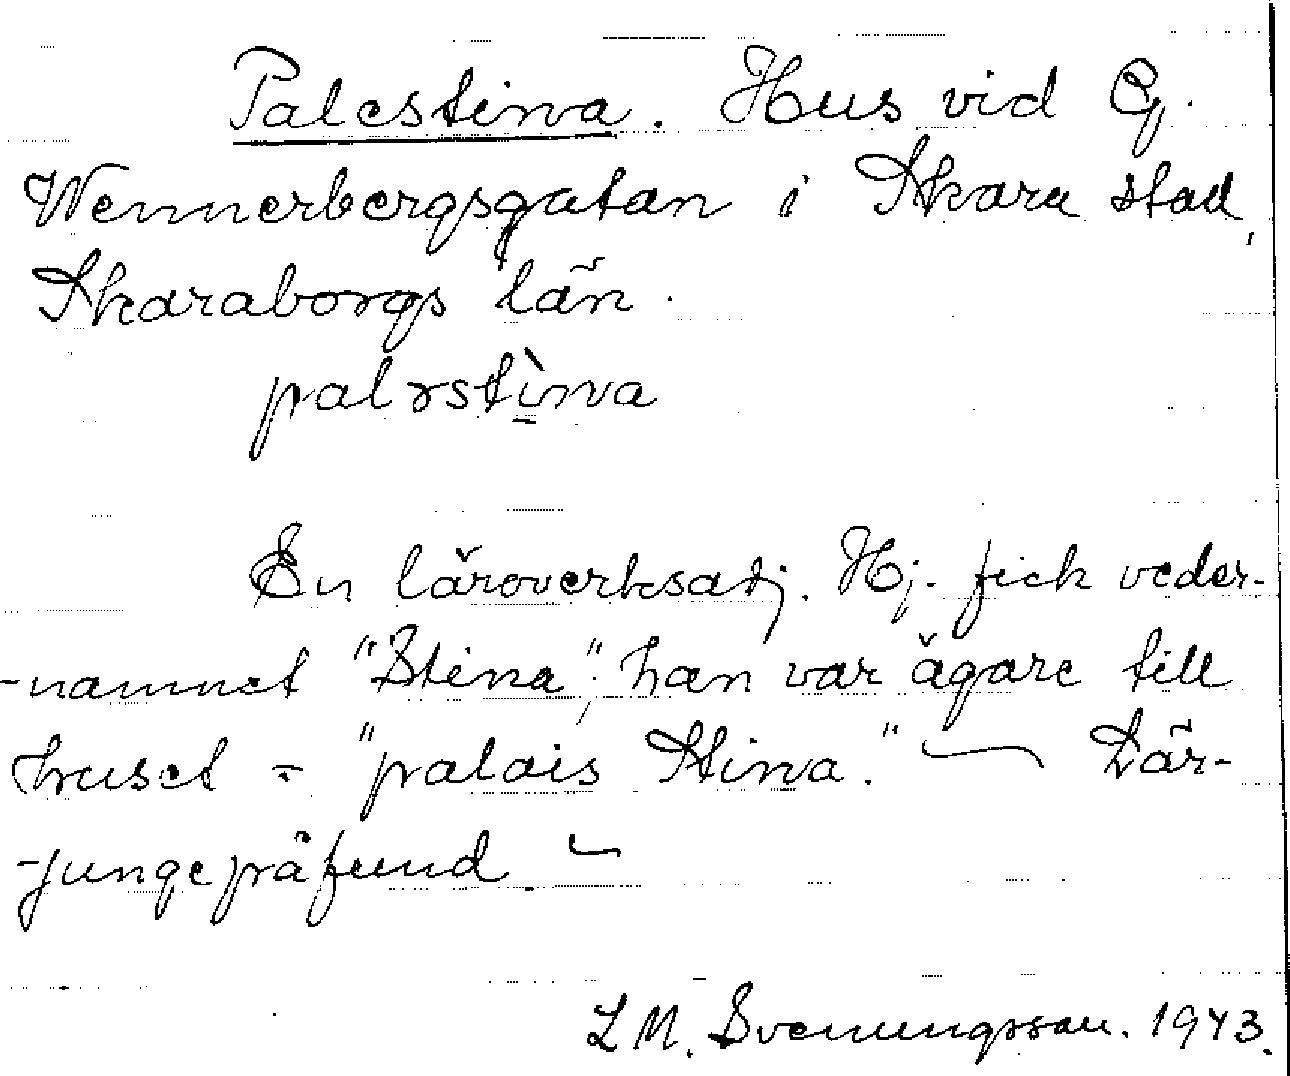 Palestina. Hus vid G.
Wennerbergsgatan i Skara stad,
Skaraborgs län.
palrstìna
En läroverksadj. Hj. fick veder-
-namnet "Stina"; han var ägare till
huset = "palais Stina." ~ Där-
-jungepåfund ~
L M. Svenungsson. 1943.